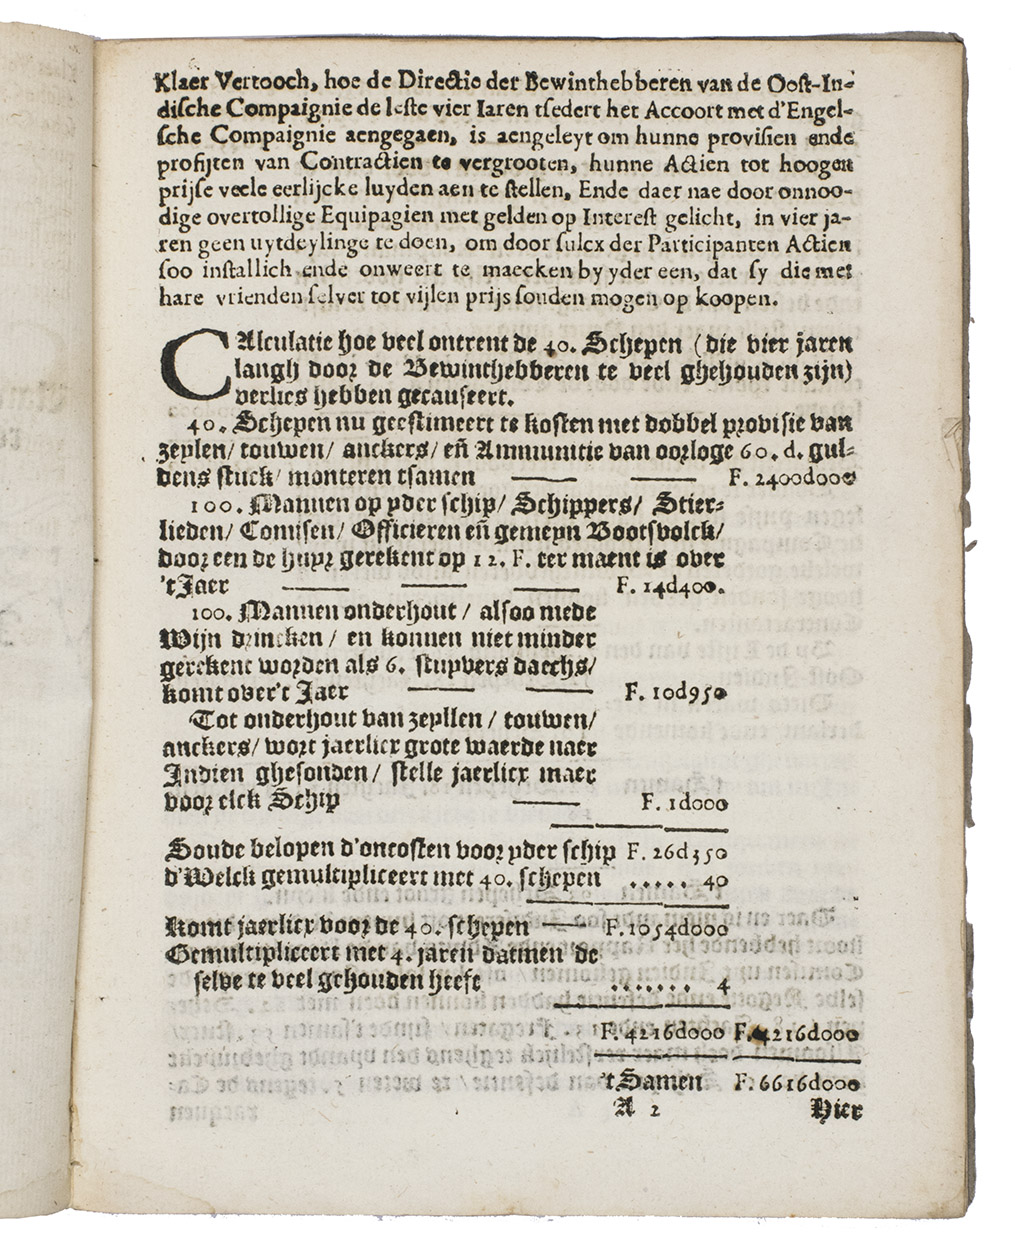 Klaer Vertooch, hoe de Directie der Bewinthebberen van de Oost-In-
dische Compaignie de leste vier Iaren tsedert het Accoort met d'Engel-
sche Compaignie aengegaen, is aengeleyt om hunne provisien ende
profijten van Contractien te vergrooten, hunne Actien tot hoogen
prijse veele eerlijcke luyden aen te stellen, Ende daer nae door onnoo-
dige overtollige Equipagien met gelden op Interest gelicht, in vier ja-
ren geen uytdeylinge te doen, om door sulcx der Participanten Actien
soo installich ende onweert te maecken by yder een, dat sy die met
hare vrienden selver tot vijlen prijs souden mogen op koopen.
CAlculatie hoe veel ontrent de 40. Schepen (die vier jaren
langh door de Bewinthebberen te veel ghehouden zijn)
verlies hebben gecauseert.
40. Schepen nu geestimeert te kosten met dobbel provisie van
zeylen/ touwen/ anckers/ eñ Ammunitie van oorloge 60. d. gul-
dens stuck/ monteren tsamen —— —— F. 2400d000
100. Mannen op yder schip/ Schippers/ Stier-
lieden/ Comisen/ Officieren eñ gemeyn Bootsvolck/
door een de huyr gerekent op 12. F. ter maent is over
't Jaer —— —— —— F. 14d400.
100. Mannen onderhout / alsoo mede
Wijn drincken / en konnen niet minder
gerekent worden als 6. stuyvers daechs/
komt over't Jaer —— —— F. 10d950
Tot onderhout van zeyllen / touwen/
anckers/ wort jaerlicx grote waerde naer
Indien ghesonden/ stelle jaerlicx maer
voor elck Schip —— F. 1d000
Soude belopen d'oncosten voor yder schip F. 26d350
d'Welck gemultipliceert met 40. schepen ..... 40
Komt jaerlicx voor de 40. schepen — F. 1054d000
Gemultipliceert met 4. jaren datmen de
selve te veel gehouden heeft ....... 4
F. 4216d000 F. 4216d000
't Samen F. 6616d000
A 2 Hier